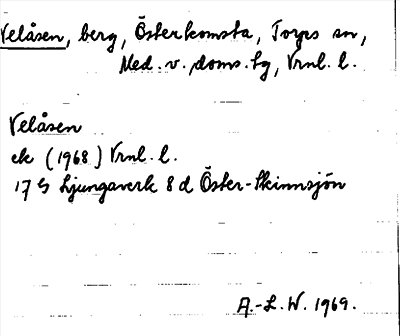 Velåsen, berg, Österkomsta, Torps sn,
Med. v. doms.tg, Vrnl. l.
Velåsen
ek (1968) Vrnl. l.
17 G Ljungaverk 8 d Öster-Skinnsjön
A.-L. W. 1969.